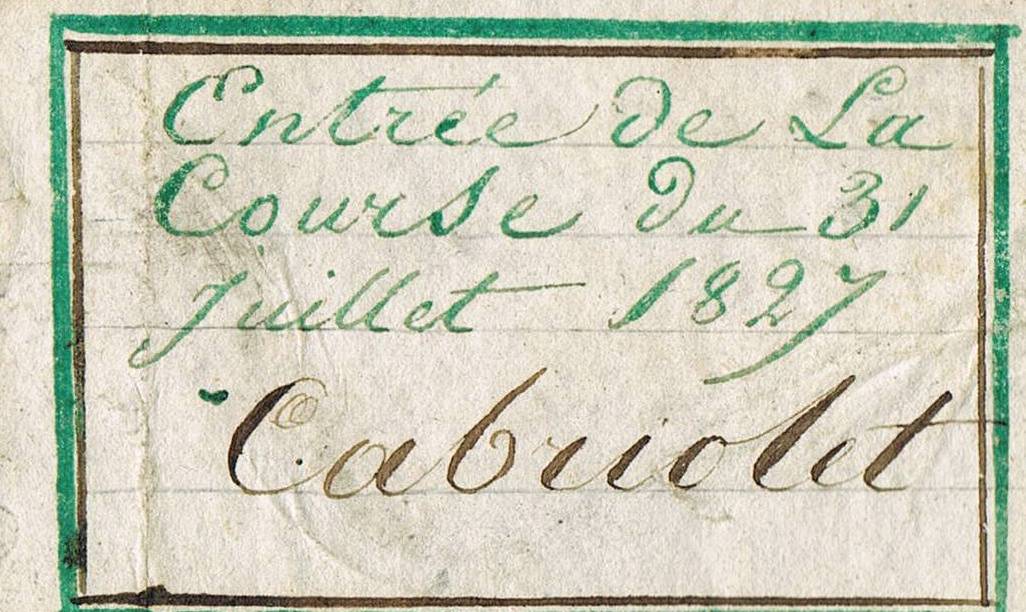 Entrée de La
Course du 31
Juillet 1827
Cabriolet